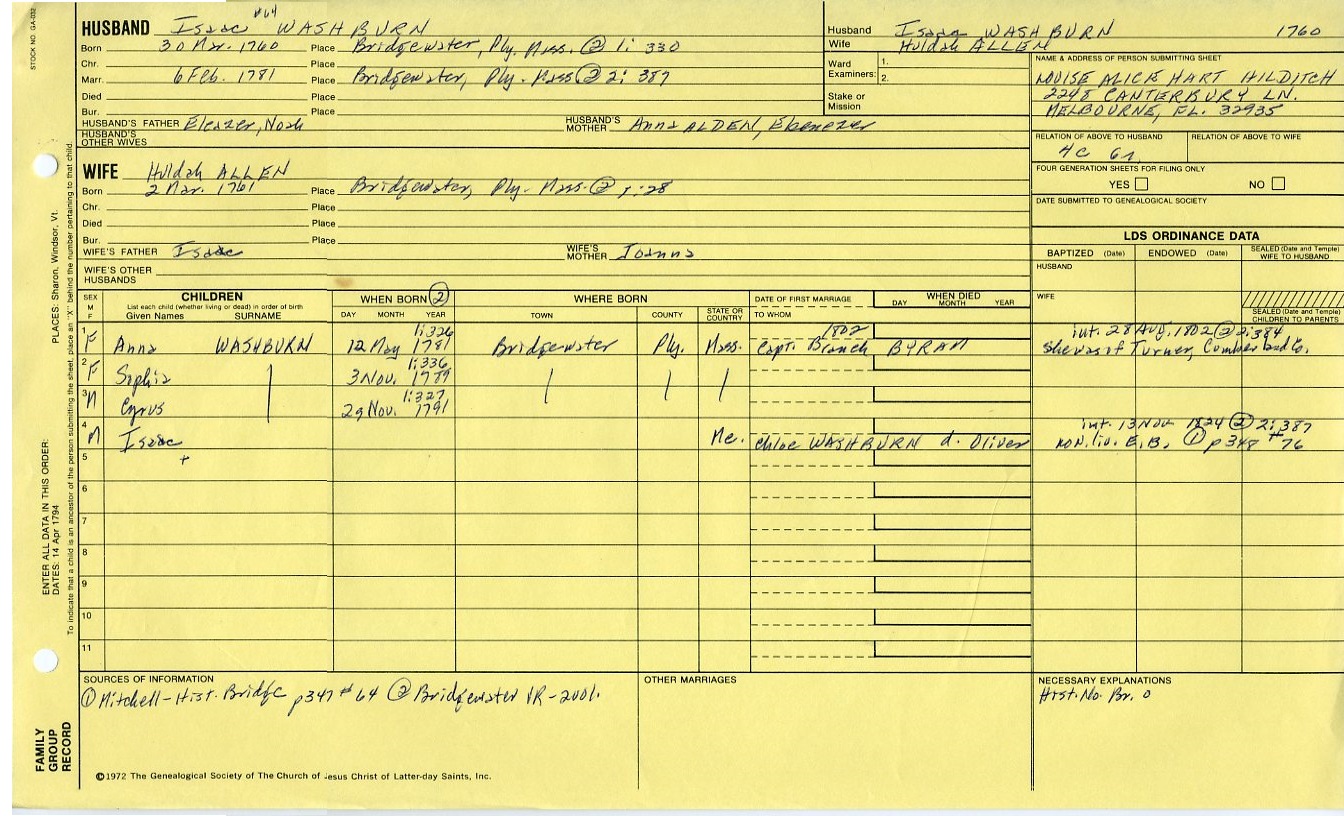 STOCK NO. GA-032
#64
HUSBAND Isaac WASHBURN
Born 30 Mar. 1760 Place Bridgewater, Ply. Mass. ② 1: 330
Chr. Place
Marr. 6 Feb. 1781 Place Bridgewater, Ply. Mass ② 2: 387
Died Place
Bur. Place
HUSBAND'S FATHER Eleazer, Noah HUSBAND'S MOTHER Anna ALDEN, Ebenezer
HUSBAND'S OTHER WIVES
Husband Isaac WASHBURN 1760
Wife Huldah ALLEN
Ward Examiners: 1.
2.
Stake or Mission
NAME & ADDRESS OF PERSON SUBMITTING SHEET
LOUISE ALICE HART HILDITCH
2248 CANTERBURY LN.
MELBOURNE, FL. 32935
RELATION OF ABOVE TO HUSBAND RELATION OF ABOVE TO WIFE
4C
FOUR GENERATION SHEETS FOR FILING ONLY
YES NO
DATE SUBMITTED TO GENEALOGICAL SOCIETY
WIFE Huldah ALLEN
Born 2 Mar. 1761 Place Bridgewater, Ply. Mass. ② 1:28
Chr. Place
Died Place
Bur. Place
WIFE'S FATHER Isaac WIFE'S MOTHER Joanna
WIFE'S OTHER HUSBANDS
LDS ORDINANCE DATA
BAPTIZED (Date) ENDOWED (Date) SEALED (Date and Temple) WIFE TO HUSBAND
HUSBAND
WIFE
SEALED (Date and Temple) CHILDREN TO PARENTS
SEX M F
CHILDREN
List each child (whether living or dead) in order of birth
Given Names SURNAME
WHEN BORN ②
DAY MONTH YEAR
WHERE BORN
TOWN COUNTY STATE OR COUNTRY
DATE OF FIRST MARRIAGE
TO WHOM
WHEN DIED
DAY MONTH YEAR
1:326 1802 int. 28 AUG. 1802 ② 2:384
1 F Anna WASHBURN 12 May 1781 Bridgewater Ply. Mass. Capt. Branch BYRAM She was of Turner, Cumberland Co.
1:336
2 F Sophia 3 Nov. 1789
1:327
3 M Cyrus 29 Nov. 1791
int. 13 Nov 1824 ② 2:387
4 M Isaac Me. Chloe WASHBURN d. Oliver non. liv. E.B. ① p348 #76
5 +
6
7
8
9
10
11
SOURCES OF INFORMATION
① Mitchell-Hist. Bridge p347 #64 ② Bridgewater VR-2001.
OTHER MARRIAGES
NECESSARY EXPLANATIONS
Hist. No. Br. 0
©1972 The Genealogical Society of The Church of Jesus Christ of Latter-day Saints, Inc.
FAMILY GROUP RECORD
ENTER ALL DATA IN THIS ORDER:
DATES: 14 Apr 1794
PLACES: Sharon, Windsor, Vt.
To indicate that a child is an ancestor of the person submitting the sheet, place an "X" behind the number pertaining to that child.